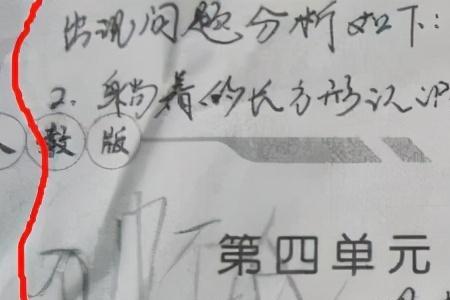 出现问题分析如下：
2. 躺着的长方形识识
人教版
第四单元